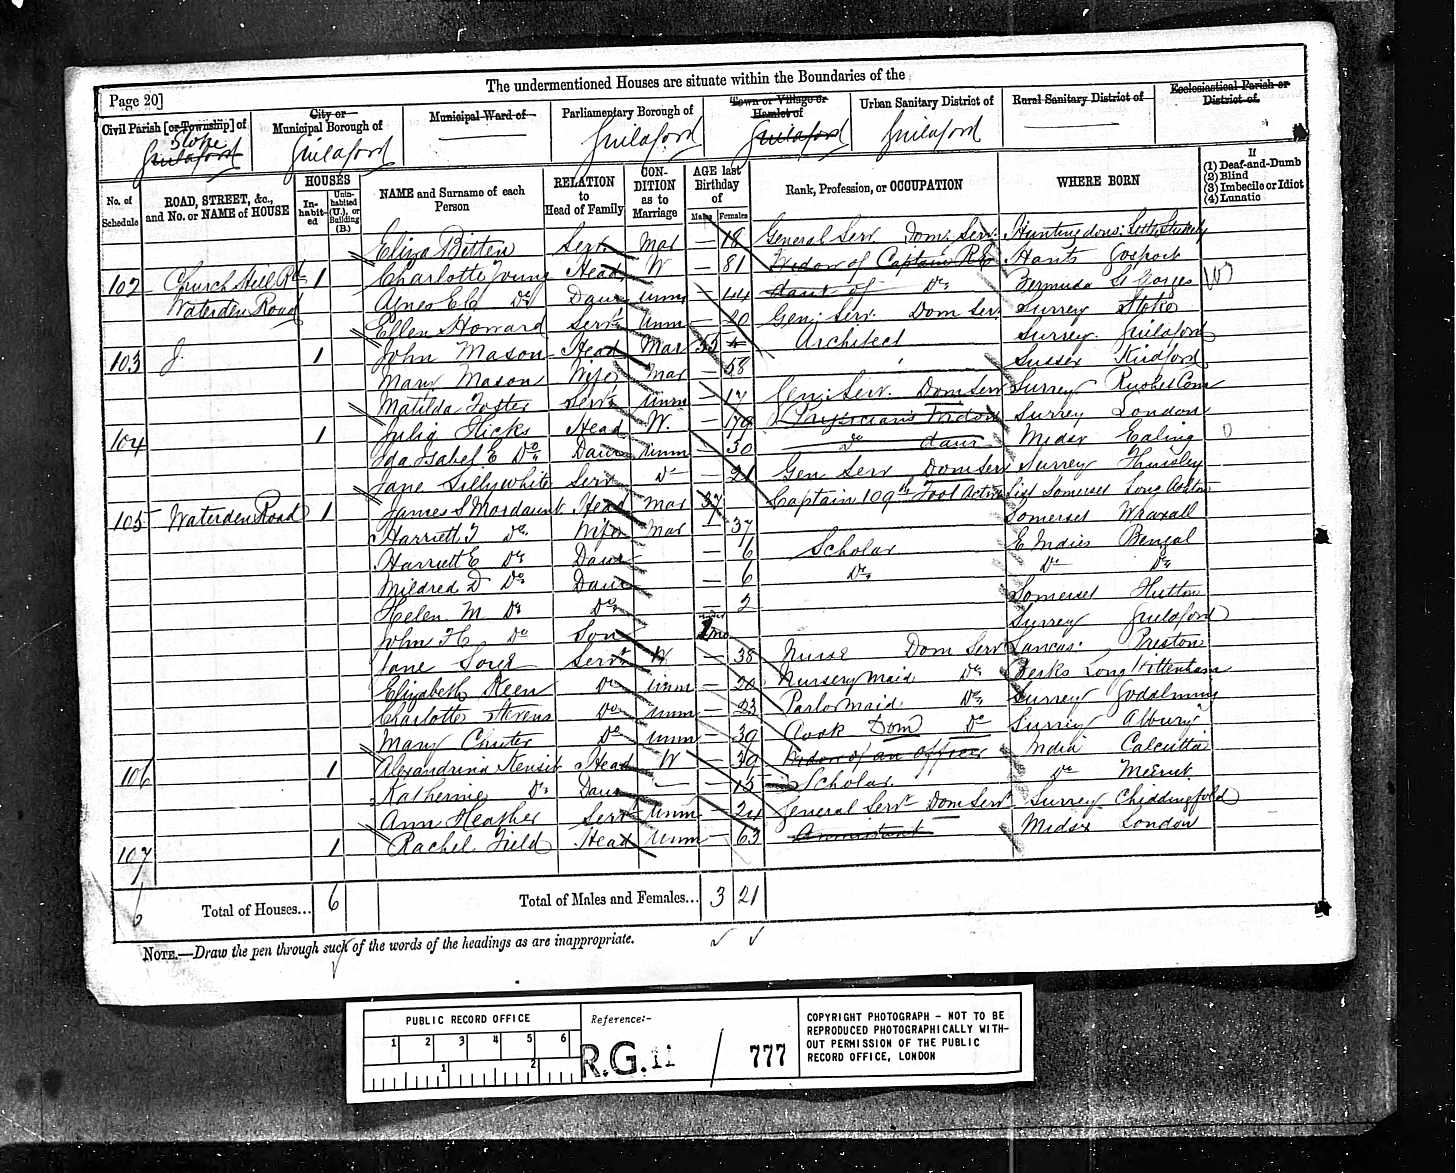 The undermentioned Houses are situate within the Boundaries of the
Page 20]
Civil Parish [or Township] of
Stoke
Guildford
City or
Municipal Borough of
Guildford
Municipal Ward of
Parliamentary Borough of
Guildford
Town or Village or
Hamlet of
Guildford
Urban Sanitary District of
Guildford
Rural Sanitary District of
Ecclesiastical Parish or
District of
No. of Schedule
ROAD, STREET, &c., and No. or NAME of HOUSE
HOUSES
In-habit-ed
Unin-habited (U.), or Building (B.)
NAME and Surname of each Person
RELATION to Head of Family
CON-DITION as to Marriage
AGE last Birthday of
Males Females
Rank, Profession, or OCCUPATION
WHERE BORN
If
(1) Deaf-and-Dumb
(2) Blind
(3) Imbecile or Idiot
(4) Lunatic
Eliza Bitten Serv. Mar — 18 General Serv. Dom. Serv.
102 Church Hill 1 Charlotte Young Head W — 81 Widow of Captain Hants Gosport
Waterden Road Agnes E C Do Daur Unm — 44 daur of Do Bermuda St Georges
Ellen Howard Servt Unm — 20 Gen: Serv. Dom Ser Surrey Stoke
103 1 John Mason Head Mar 53 Architect Surrey Guildford
Mary Mason Wife Mar — 58 Sussex
Matilda Foster Servt Unm — 17 Gen: Serv. Dom Serv Surrey
104 1 Julia Hicks Head W. — Physicians Widow Surrey London
Ida Isabel E Do Daur Unm — 30 Do daur Midsx Ealing
Jane Sillywhite Serv Do — 21 Gen Serv Dom Serv Surrey
105 Waterden Road 1 James S Mordaunt Head Mar 37 Captain 109th Foot Active List Somerset Long Ashton
Harriett J Do Wife Mar 37 Somerset Wraxall
Harriett E Do Daur — 6 Scholar E Indies Bengal
Mildred D Do Daur — 6 Do Do Do
Helen M Do Do — 2 Somerset Hutton
John H Do Son under 1 mo Surrey Guildford
Jane Servt W — 38 Nurse Dom Serv Lancas: Preston
Elizabeth Keen Do Unm — 20 Nursery maid Do Berks Long Wittenham
Charlotte Stevens Do Unm — 23 Parlormaid Do Surrey Godalming
Mary Chuter Do Unm — 30 Cook Dom Do Surrey Albury
106 1 Alexandrina Kensit Head W — Widow of an Officer India Calcutta
Katherine Do Daur — — 13 Scholar Do Meerut
Ann Heather Servt Unm — 24 General Servt Dom Servt Surrey Chiddingfold
107 1 Rachel Field Head Unm — 63 Annuitant Midsx London
6 Total of Houses... 6 Total of Males and Females... 3 21
NOTE.—Draw the pen through such of the words of the headings as are inappropriate.
PUBLIC RECORD OFFICE
1 2 3 4 5 6
1 2
Reference:-
R.G. 11 / 777
COPYRIGHT PHOTOGRAPH - NOT TO BE
REPRODUCED PHOTOGRAPHICALLY WITH-
OUT PERMISSION OF THE PUBLIC
RECORD OFFICE, LONDON